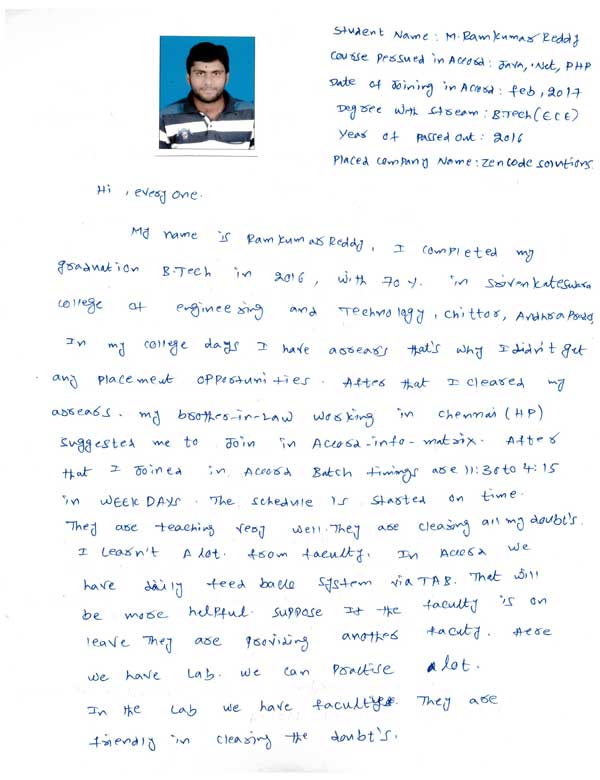 Student Name : M. Ramkumar Reddy
Course Persued in Accord : Java, .Net, PHP
Date of Joining in Accord : feb, 2017
Degree with stream : B.Tech (ECE)
Year of Passed Out : 2016
Placed Company Name : Zencode solutions.
Hi, every one.
My name is Ramkumar Reddy, I completed my
graduation B.Tech in 2016, with 70%. in Srivenkateswara
college of engineering and Technology, chittor, Andhra Prades,
In my college days I have arrears that's why I didn't get
any placement opportunities. After that I cleared my
arrears. my brother-in-law working in chennai (HP)
suggested me to Join in Accord-info-matrix. After
that I Joined in Accord Batch timings are 11:30 to 4:15
in WEEK DAYS. The schedule is started on time.
They are teaching very well. They are clearing all my doubt's.
I learn't a lot. from faculty. In Accord we
have daily feed back system via TAB. That will
be more helpful. suppose If the faculty is on
leave They are providing another facuty. Here
we have Lab. we can practise a lot.
In the Lab we have facultyes. They are
friendly in clearing the doubt's.